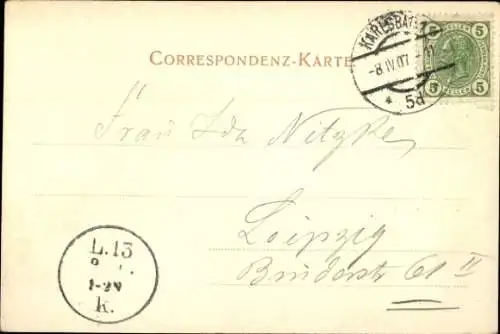 CORRESPONDENZ-KARTE
KARLSBAD 1
-8.IV.07.-11
* 5d
5 HELLER 5
Frau Ida Nitzke
Leipzig
Brüderstr 61 II
L.13
1-2N
k.